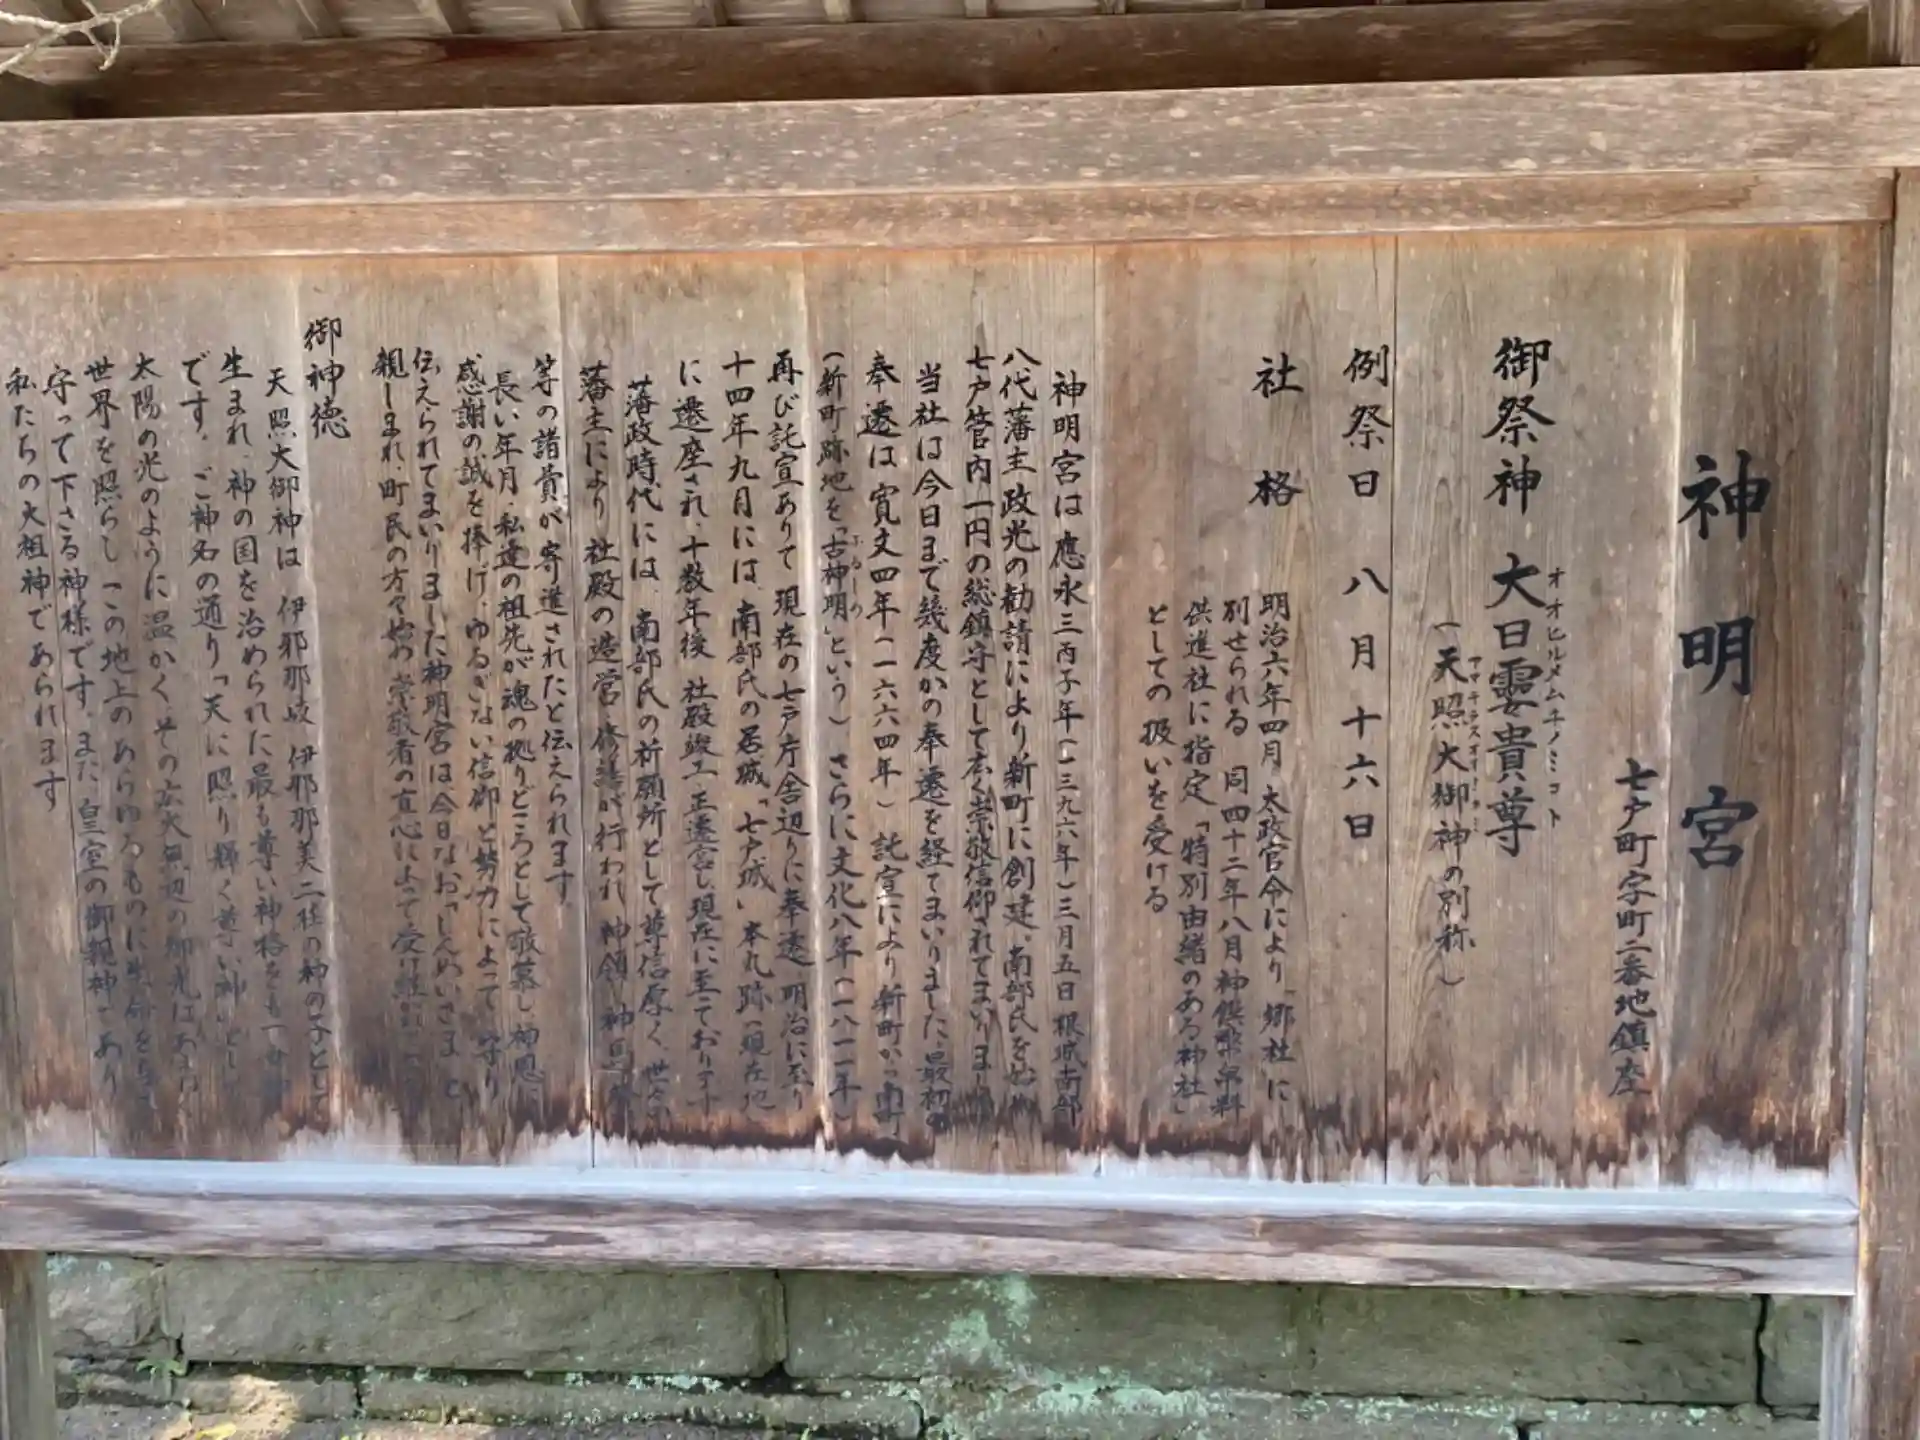 神明宮
七戸町字町二番地鎮座
御祭神 大日孁貴尊
オオヒルメムチノミコト
(天照大御神の別称)
例祭日 八月十六日
社格 明治六年四月 太政官令により「郷社」に
別せられる 同四十二年八月神饌幣帛料
供進社に指定「特別由緒のある神社」
としての扱いを受ける
神明宮は應永三丙子年(一三九六年)三月五日 根城南部
八代藩主政光の勧請により新町に創建、南部氏を始め
七戸管内一円の総鎮守として広く崇敬信仰されてまいりました
当社は今日まで幾度かの奉遷を経てまいりました、最初の
奉遷は寛文四年(一六六四年)託宣により新町から南町
(新町跡地を「古神明」という)さらに文化八年(一八一一年)
再び託宣ありて現在の七戸庁舎辺りに奉遷 明治に至り
十四年九月には、南部氏の居城「七戸城」本丸跡(現在地
に遷座され、十数年後 社殿竣工 正遷宮し現在に至っております
藩政時代には、南部氏の祈願所として尊信厚く、世々の
藩主により 社殿の造営、修繕が行われ 神領 神馬
等の諸貴が寄進されたと伝えられます。
長い年月、私達の祖先が魂の拠りどころとして敬慕し、神恩に
感謝の誠を捧げ、ゆるぎない信仰と努力によって、守り
伝えられてまいりました神明宮は今日なお「しんめいさま」と
親しまれ、町民の方々始め 崇敬者の真心によって受け継が
御神徳
天照大御神は 伊邪那岐 伊邪那美二柱の神の子として
生まれ、神の国を治められた最も尊い神格をも
です。ご神名の通り「天に照り輝く尊い神」
太陽の光のように温かく、その広大無辺の御光は
世界を照らし この地上のあらゆるものに生命を
守って下さる神様です。また、皇室の御親神であり
私たちの大祖神であられます